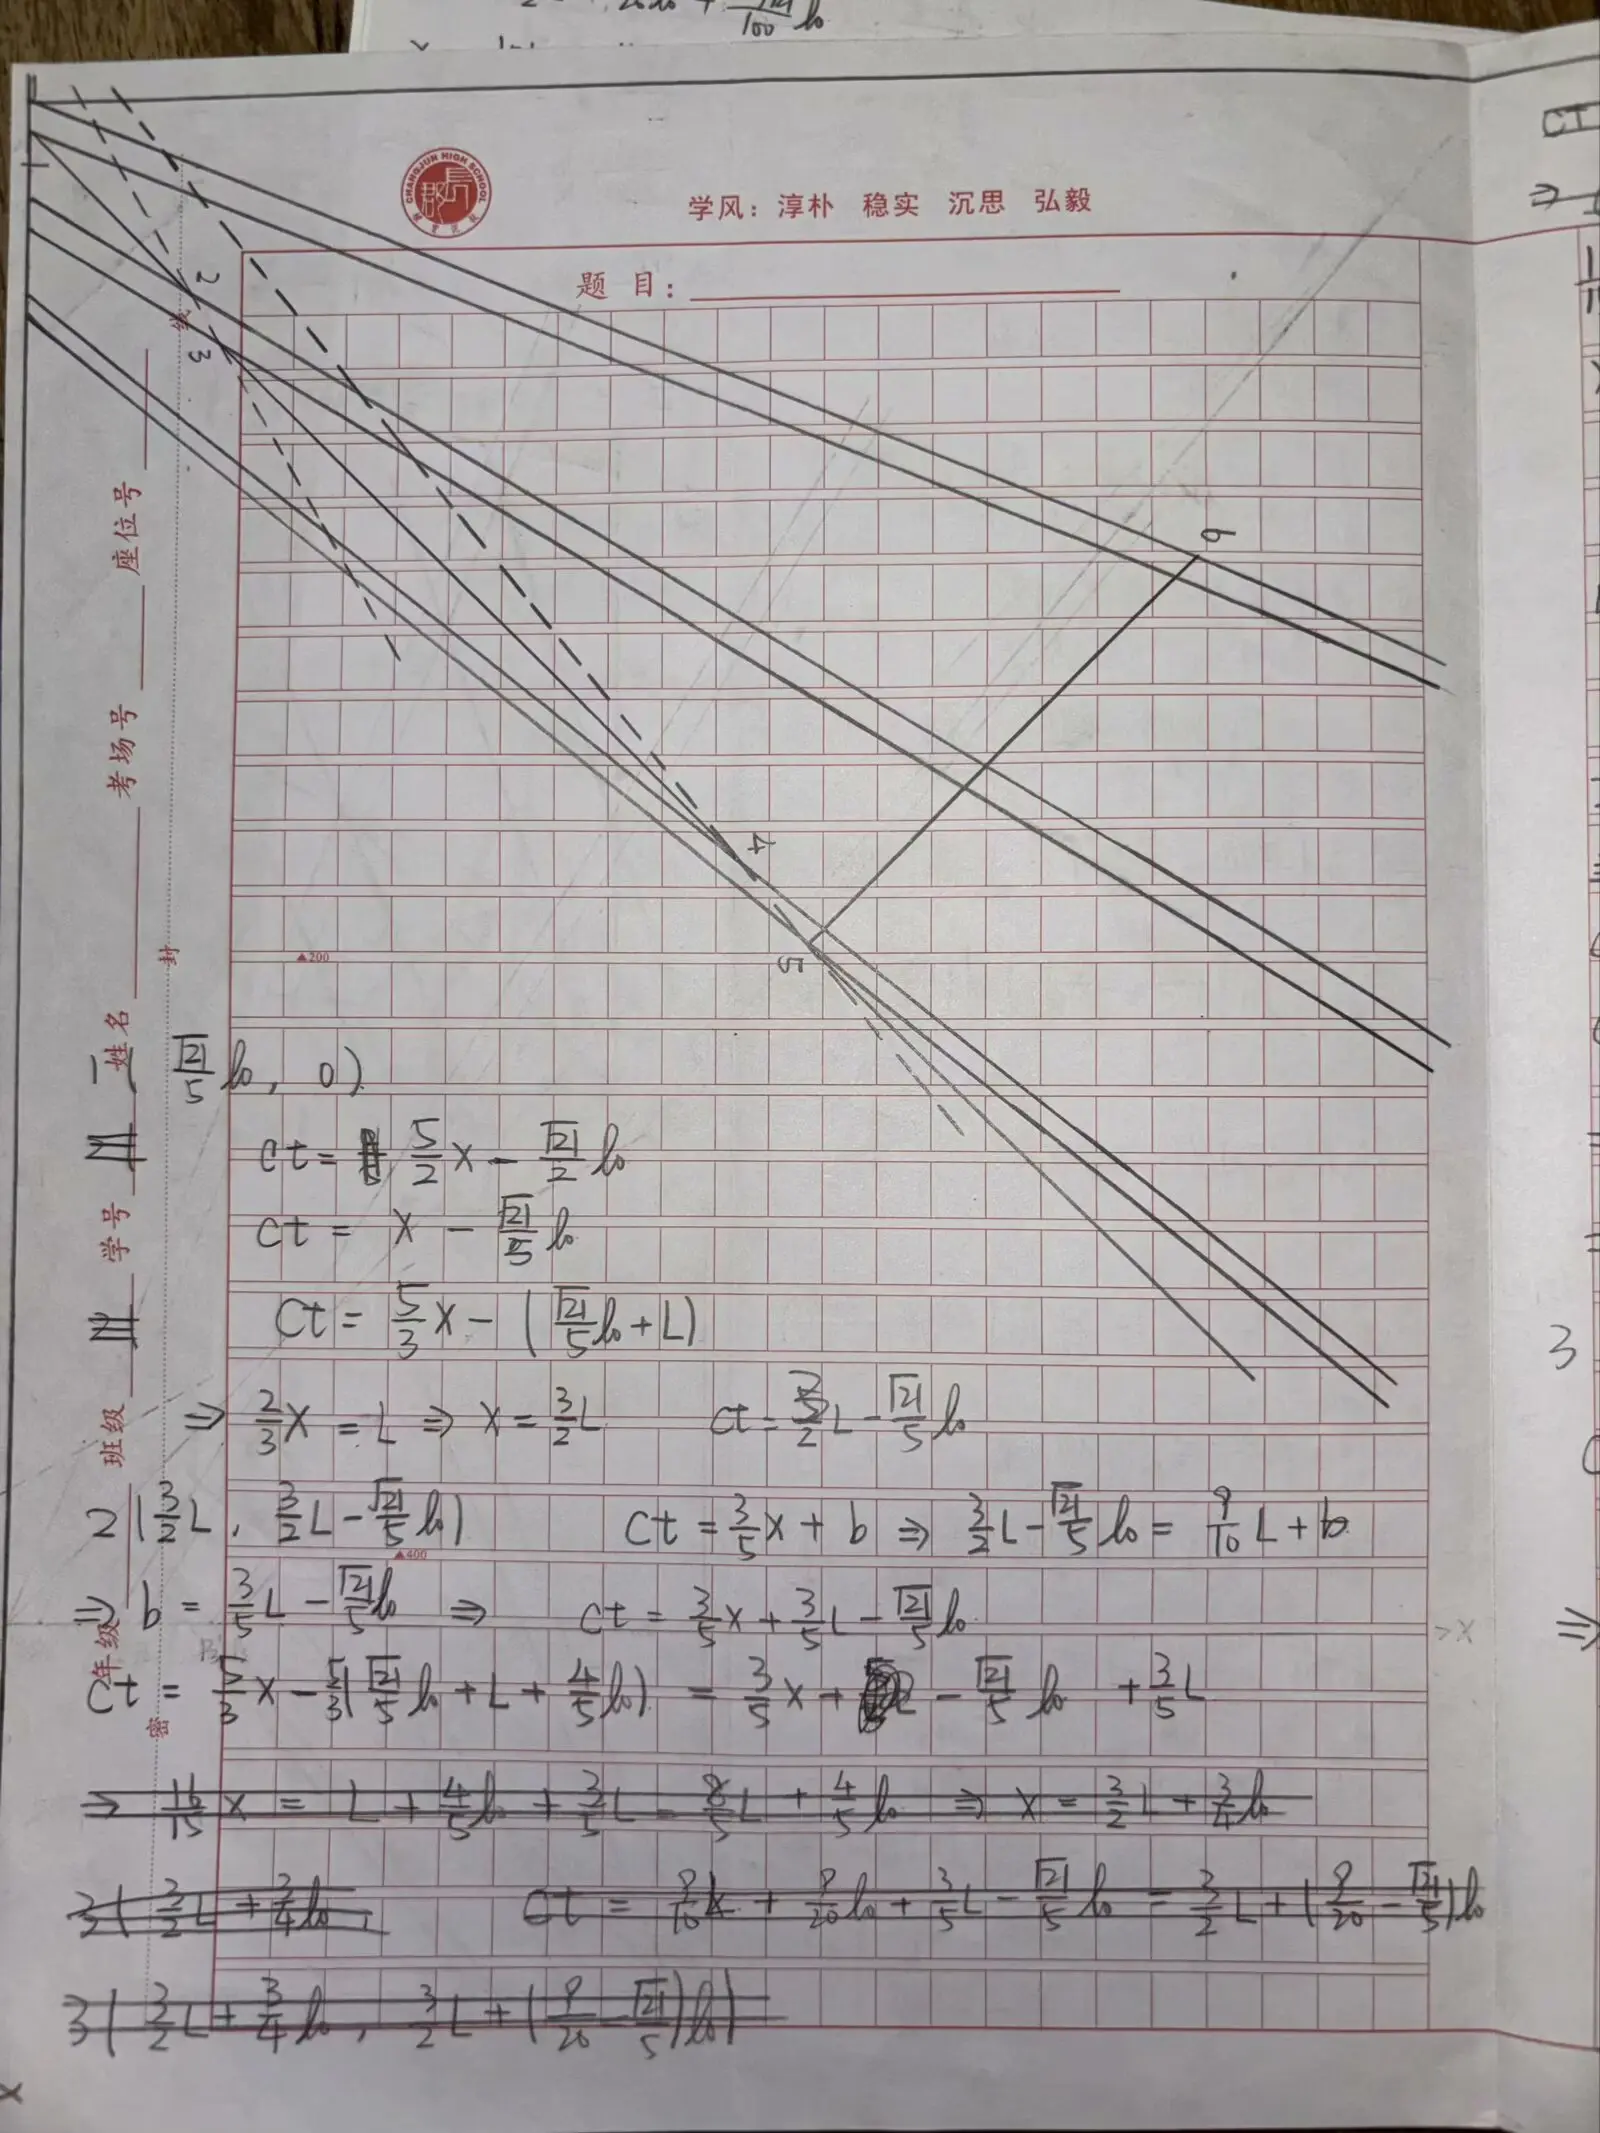 100 l₀
CHANGJUN HIGH SCHOOL
学风：淳朴 稳实 沉思 弘毅
题 目：
2
3
4
5
6
座位号
考场号
姓名
学号
班级
年级
线
封
密
▲200
▲400
√21/5 l₀, 0)
ct = 5/2 x - √21/2 l₀
ct = x - √21/5 l₀
ct = 5/3 x - (√21/5 l₀ + L)
⇒ 2/3 x = L ⇒ x = 3/2 L ct = 3/2 L - √21/5 l₀
2 (3/2 L, 3/2 L - √21/5 l₀) ct = 3/5 x + b ⇒ 3/2 L - √21/5 l₀ = 9/10 L + b
⇒ b = 3/5 L - √21/5 l₀ ⇒ ct = 3/5 x + 3/5 L - √21/5 l₀
ct = 5/3 x - 5/3 (√21/5 l₀ + L + 4/5 l₀) = 3/5 x + - √21/5 l₀ + 3/5 L
⇒ 16/15 x = L + 4/5 l₀ + 3/5 L = 8/5 L + 4/5 l₀ ⇒ x = 3/2 L + 3/4 l₀
3 ( 3/2 L + 3/4 l₀, ct = 9/10 L + 9/20 l₀ + 3/5 L - √21/5 l₀ = 3/2 L + (9/20 - √21/5) l₀
3 ( 3/2 L + 3/4 l₀, 3/2 L + (9/20 - √21/5) l₀)
> x
ct
⇒
3
⇒
x